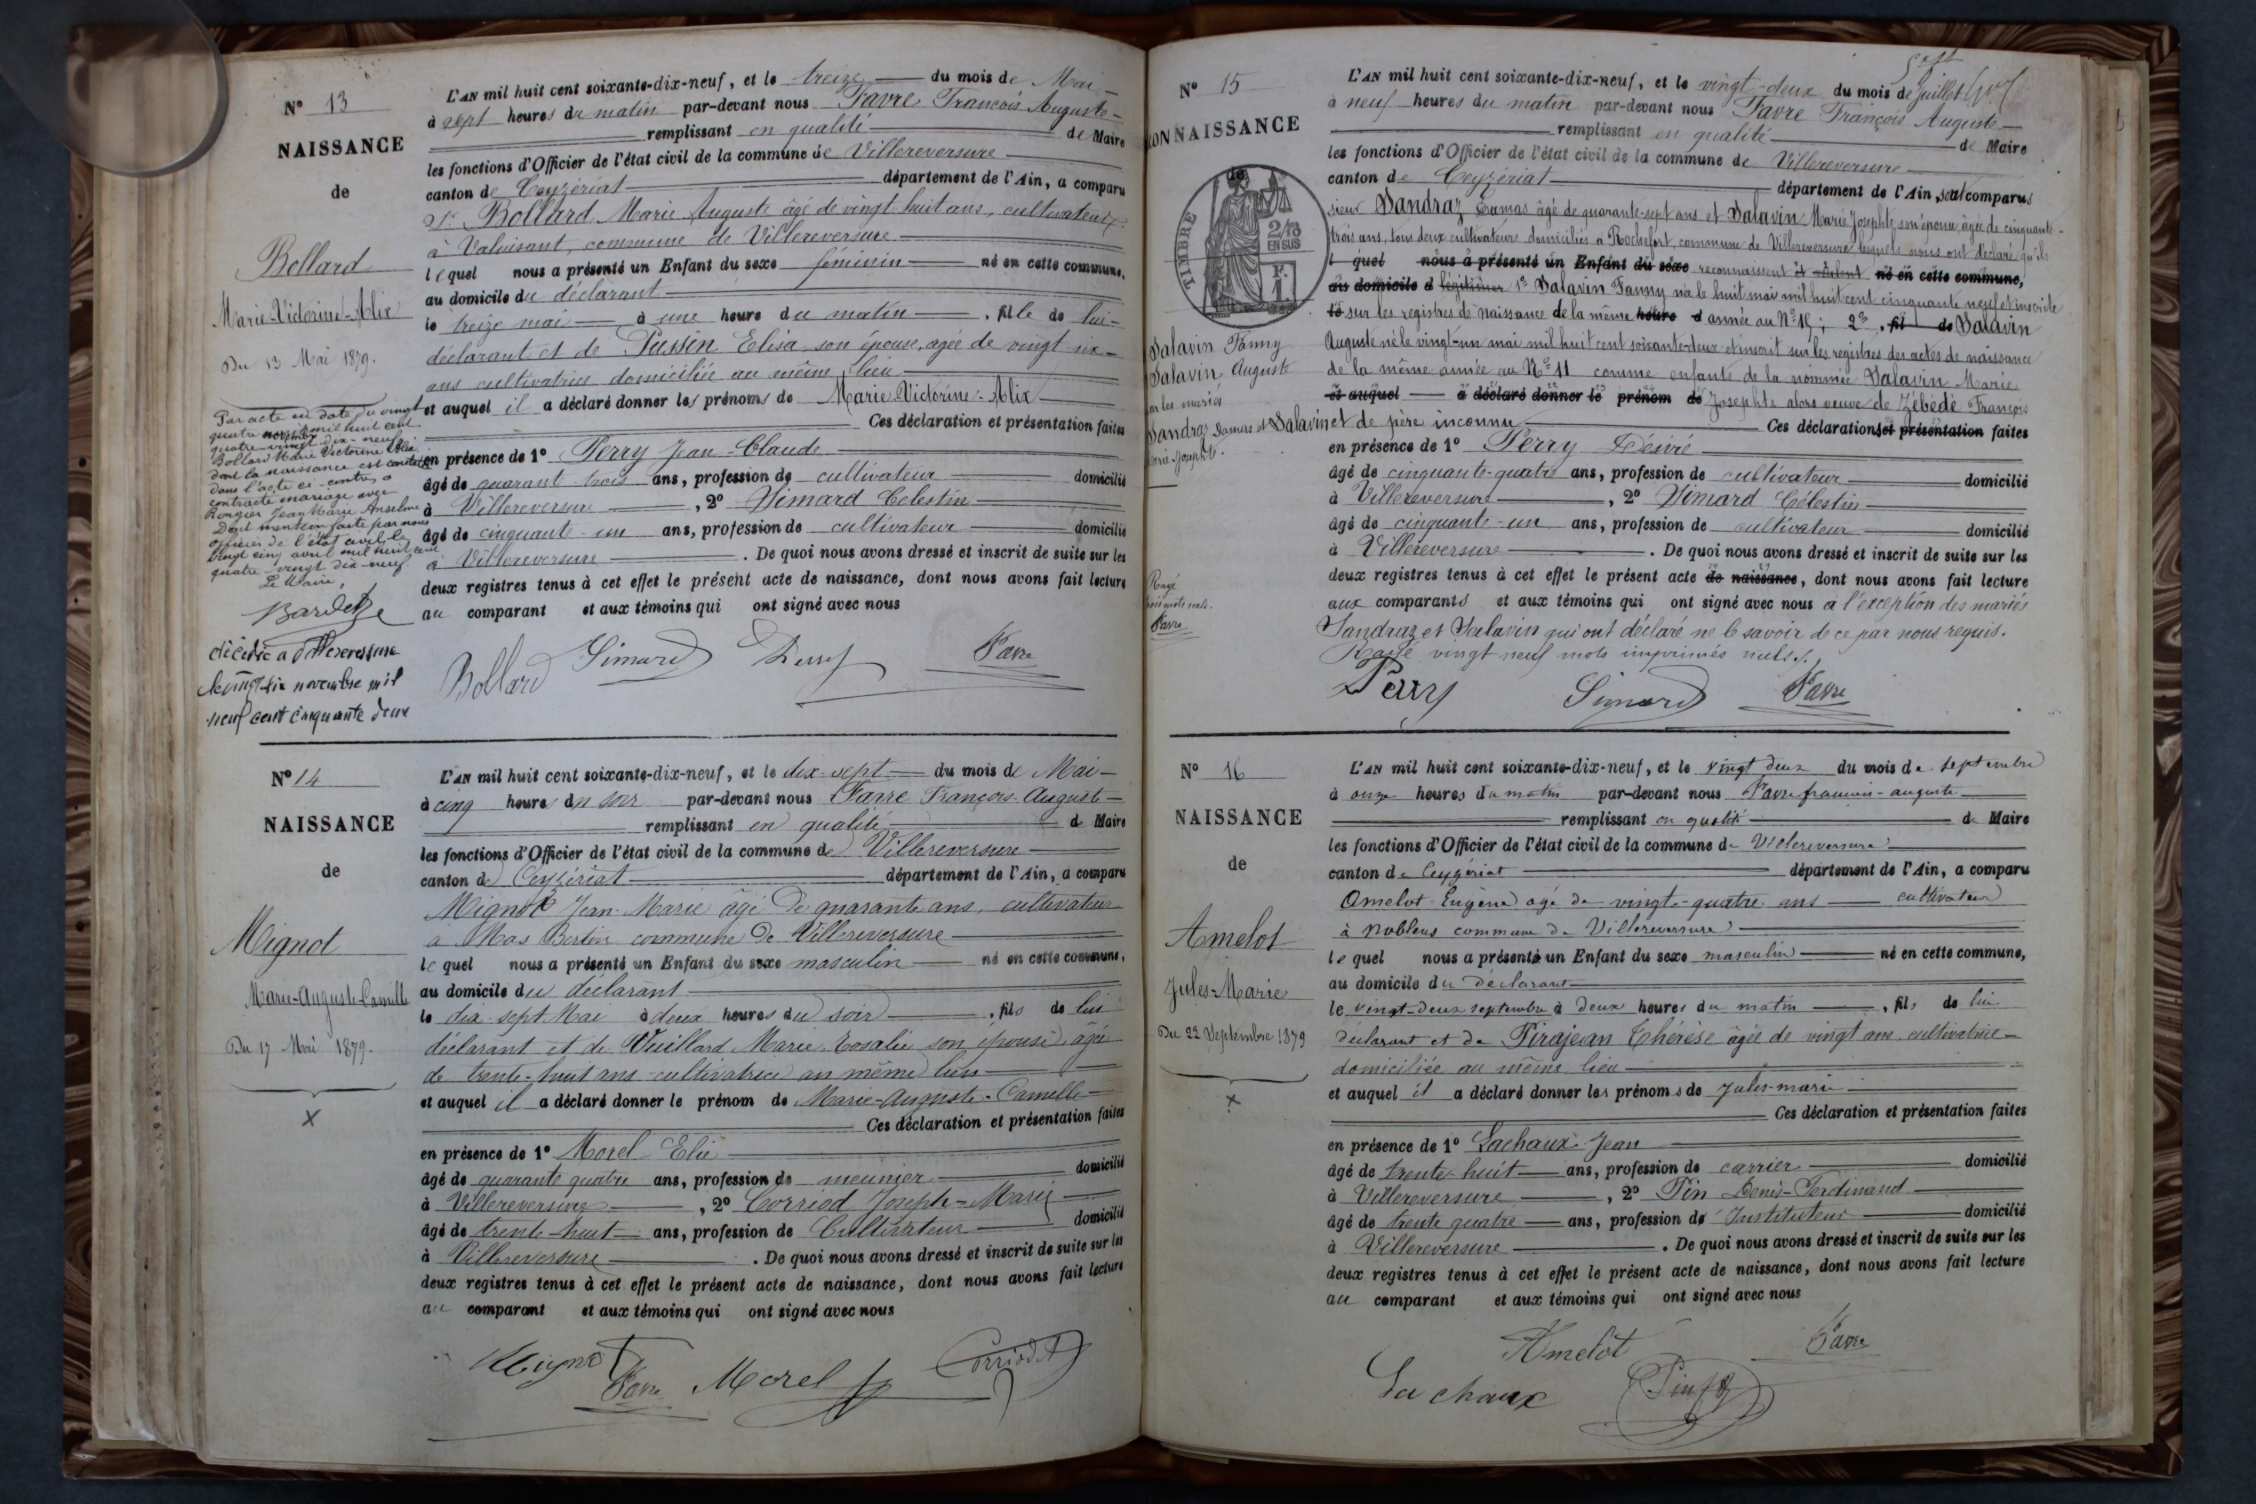 N° 13
NAISSANCE
de
Bollard
Marie-Victorine-Alix
Du 13 Mai 1879.
Par acte en date du vingt
quatre mil huit cent
quatre-vingt dix-neuf
Bollard Marie Victorine Alix
dont la naissance est constatée
dans l'acte ci-contre, a
contracté mariage avec
Rongier Jean Marie Anselme
Dont mention faite par nous
officier de l'état civil, le
vingt cinq avril mil huit cent
quatre-vingt dix-neuf.
Le Maire,
décédée à Villereversure
le vingt six novembre mil
neuf cent cinquante deux
L'AN mil huit cent soixante-dix-neuf, et le treize du mois de Mai
à sept heures du matin par-devant nous Favre François Auguste
remplissant en qualité de Maire
les fonctions d'Officier de l'état civil de la commune de Villereversure
canton de Ceyzériat département de l'Ain, a comparu
Sr Bollard Marie Auguste âgé de vingt huit ans, cultivateur
à Valuisant, commune de Villereversure
lequel nous a présenté un Enfant du sexe féminin né en cette commune,
au domicile du déclarant
le treize mai à une heure du matin, fille de lui-
déclarant et de Pussin Elisa son épouse, agée de vingt six
ans cultivatrice domiciliée au même lieu
et auquel il a déclaré donner les prénoms de Marie-Victorine-Alix
Ces déclaration et présentation faites
en présence de 1° Perry Jean-Claude
âgé de quarante trois ans, profession de cultivateur domicilié
à Villereversure, 2° Simard Célestin
âgé de cinquante-un ans, profession de cultivateur domicilié
à Villereversure. De quoi nous avons dressé et inscrit de suite sur les
deux registres tenus à cet effet le présent acte de naissance, dont nous avons fait lecture
au comparant et aux témoins qui ont signé avec nous
Bollard Simard Perry Favre
N° 14
NAISSANCE
de
Mignot
Marie-Auguste-Camille
Du 17 Mai 1879.
X
L'AN mil huit cent soixante-dix-neuf, et le dix-sept du mois de Mai
à cinq heures du soir par-devant nous Favre François-Auguste
remplissant en qualité de Maire
les fonctions d'Officier de l'état civil de la commune de Villereversure
canton de Ceyzériat département de l'Ain, a comparu
Mignot Jean-Marie âgé de quarante ans, cultivateur
à Mas Bertin commune de Villereversure
lequel nous a présenté un Enfant du sexe masculin né en cette commune,
au domicile du déclarant
le dix sept Mai à deux heures du soir, fils de lui
déclarant et de Vuillard Marie-Rosalie son épouse âgée
de trente-huit ans cultivatrice au même lieu
et auquel il a déclaré donner le prénom de Marie-Auguste-Camille
Ces déclaration et présentation faites
en présence de 1° Morel Elie
âgé de quarante quatre ans, profession de meunier domicilié
à Villereversure, 2° Corriod Joseph-Marie
âgé de trente-huit ans, profession de Cultivateur domicilié
à Villereversure. De quoi nous avons dressé et inscrit de suite sur les
deux registres tenus à cet effet le présent acte de naissance, dont nous avons fait lecture
au comparant et aux témoins qui ont signé avec nous
Mignot Favre Morel Corriod
N° 15
ONNAISSANCE
de
TIMBRE
2/10
EN SUS
Salavin Fanny
Salavin Auguste
par les mariés
Sandraz Damas et Salavin
Marie Josephte.
Rayé
trois mots nuls.
Favre
Sept
L'AN mil huit cent soixante-dix-neuf, et le vingt-deux du mois de Juillet
à neuf heures du matin par-devant nous Favre François Auguste
remplissant en qualité de Maire
les fonctions d'Officier de l'état civil de la commune de Villereversure
canton de Ceyzériat département de l'Ain, sont comparus
sieur Sandraz Damas âgé de quarante-sept ans et Salavin Marie Josephte son épouse âgée de cinquante-
trois ans, tous deux cultivateurs domiciliés à Rochefort, commune de Villereversure lesquels nous ont déclaré qu'ils
l quel nous a présenté un Enfant du sexe reconnaissent né en cette commune,
au domicile d légitimer 1° Salavin Fanny née le huit mai mil huit cent cinquante neuf et inscrite
le sur les registres de naissance de la même heure d année au N° 15; 2°, fil de Salavin
Auguste né le vingt-un mai mil huit cent soixante-deux et inscrit sur les registres des actes de naissance
de la même année au N° 11 comme enfants de la nommée Salavin Marie
et auquel a déclaré donner le prénom de Josephte alors veuve de Zébédé François
et de père inconnu Ces déclarations et présentation faites
en présence de 1° Perry Désiré
âgé de cinquante-quatre ans, profession de cultivateur domicilié
à Villereversure, 2° Simard Célestin
âgé de cinquante-un ans, profession de cultivateur domicilié
à Villereversure. De quoi nous avons dressé et inscrit de suite sur les
deux registres tenus à cet effet le présent acte de naissance, dont nous avons fait lecture
aux comparants et aux témoins qui ont signé avec nous à l'exception des mariés
Sandraz et Salavin qui ont déclaré ne le savoir de ce par nous requis.
Rayé vingt neuf mots imprimés nuls.
Perry Simard Favre
N° 16
NAISSANCE
de
Amelot
Jules-Marie
Du 22 Septembre 1879
X
L'AN mil huit cent soixante-dix-neuf, et le vingt deux du mois de septembre
à onze heures du matin par-devant nous Favre françois-auguste
remplissant en qualité de Maire
les fonctions d'Officier de l'état civil de la commune de Villereversure
canton de Ceyzériat département de l'Ain, a comparu
Amelot Eugène agé de vingt-quatre ans cultivateur
à Noblens commune de Villereversure
lequel nous a présenté un Enfant du sexe masculin né en cette commune,
au domicile du Déclarant
le vingt-deux septembre à deux heures du matin, fils de lui
déclarant et de Pirajean Thérèse âgée de vingt ans cultivatrice
domiciliée au même lieu
et auquel il a déclaré donner les prénoms de Jules-marie
Ces déclaration et présentation faites
en présence de 1° Lachaux Jean
âgé de trente-huit ans, profession de carrier domicilié
à Villereversure, 2° Pin Denis-Ferdinand
âgé de trente quatre ans, profession de Instituteur domicilié
à Villereversure. De quoi nous avons dressé et inscrit de suite sur les
deux registres tenus à cet effet le présent acte de naissance, dont nous avons fait lecture
au comparant et aux témoins qui ont signé avec nous
Amelot Favre
Lachaux Pin